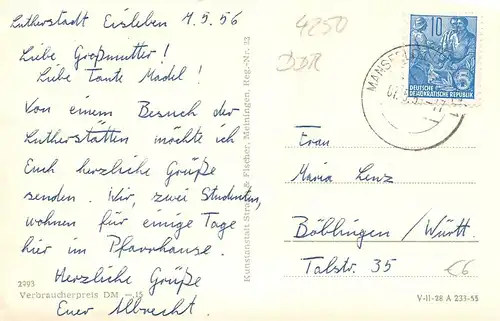 Lutherstadt Eisleben 7.5.56
Liebe Großmutter!
Liebe Tante Mädel!
Von einem Besuch der
Lutherstätten möchte ich
Euch herzliche Grüße
senden. Wir, zwei Studenten,
wohnen für einige Tage
hier im Pfarrhause.
Herzliche Grüße
Euer Albrecht.
2993
Verbraucherpreis DM —.15
Kunstanstalt Straub & Fischer, Meiningen, Reg.-Nr. 32
4250
DDR
10
5
DEUTSCHE
DEMOKRATISCHE REPUBLIK
MANSFE
Frau
Maria Lenz
Böblingen / Württ.
Talstr. 35
€6
V-11-28 A 233-55